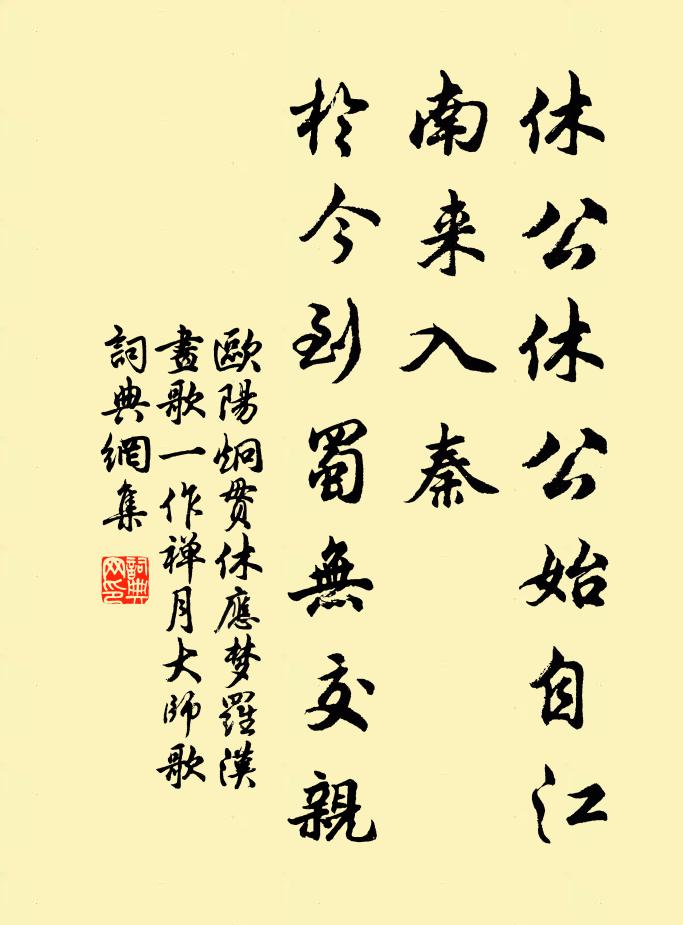 休公休公始自江
南来入秦
於今到蜀無交親
歐陽炯貫休應梦羅漢
畫歌一作禅月大師歌
詞典網集
詞典网印